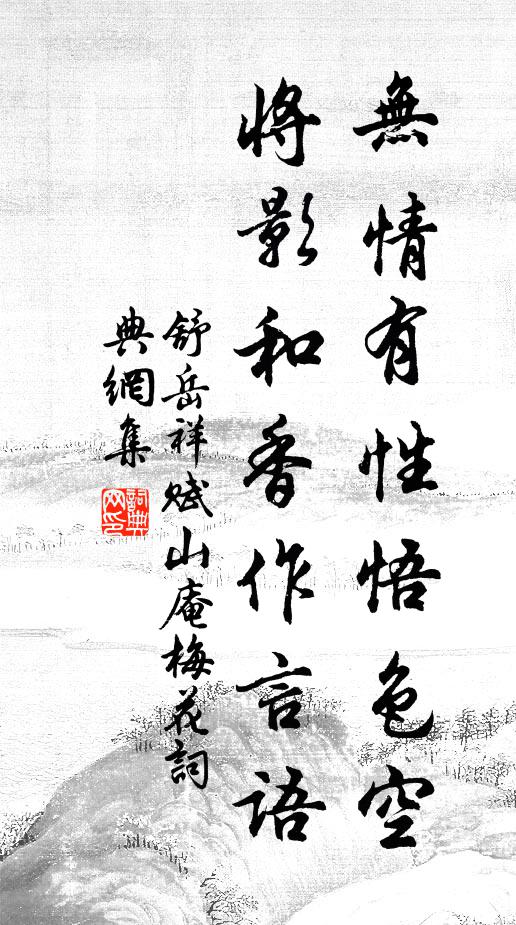 無情有性悟色空
將影和香作言語
舒岳祥賦山庵梅花詞
典網集
詞典網印